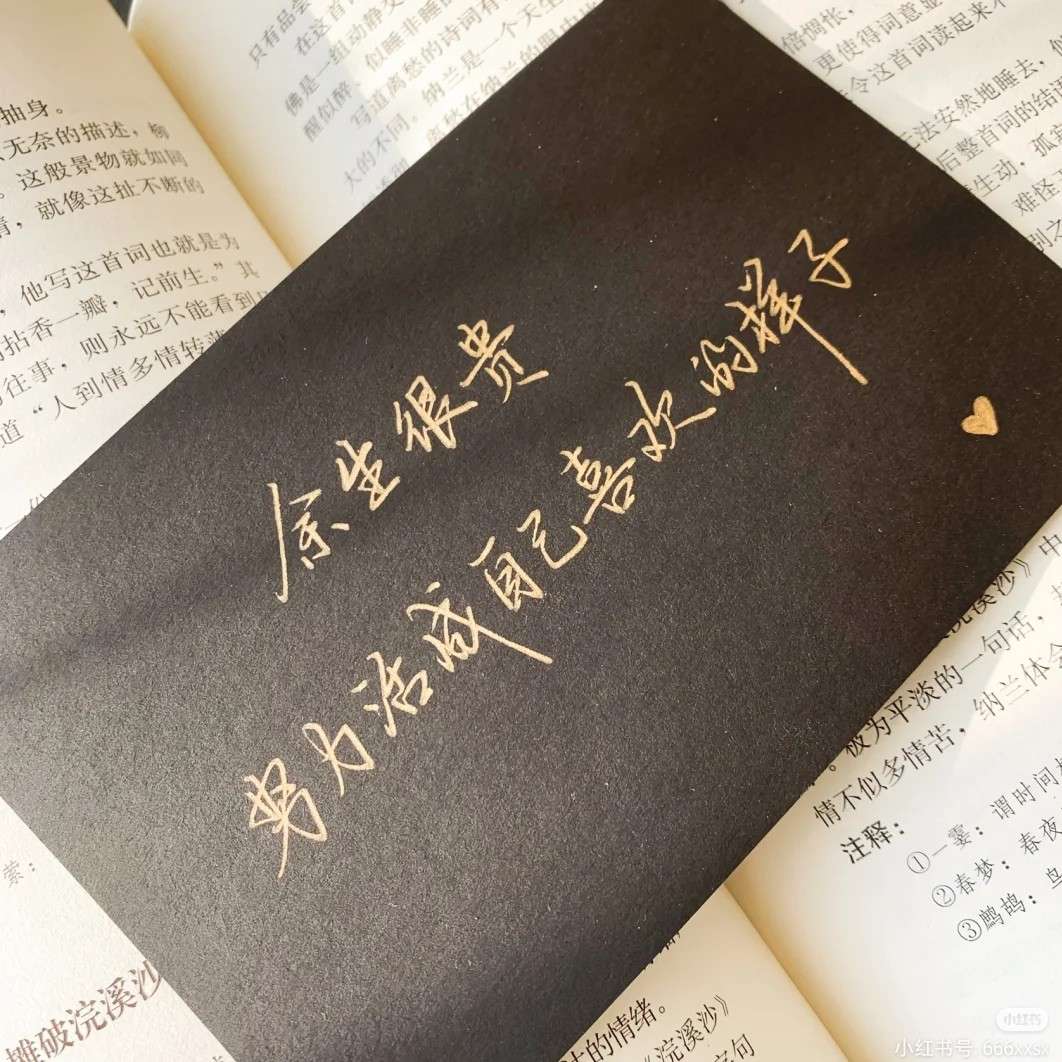 余生很贵
努力活成自己喜欢的样子
抽身。
无奈的描述，柳
。这般景物就如同
情，就像这扯不断的
他写这首词也就是为
拈香一瓣，记前生。”其
往事，则永远不能看到
道“人到情多情转薄
只有品尝
在这首词
是一组动静交
似睡非睡
醒似醉
的诗词有
写道离愁
纳兰是一个天生
大的不同。
倍惆怅，
更使得词意显
令这首词读起来不
法安然地睡去，
后整首词的结
生动，孤
难怪
浣溪沙》中
极为平淡的一句话，
情不似多情苦，纳兰体会
注释：
①一霎：谓时间极
②春梦：春夜
③鹧鸪：鸟
雕破浣溪沙
的情绪。
《浣溪沙》
小红书
小红书号：666xxsx